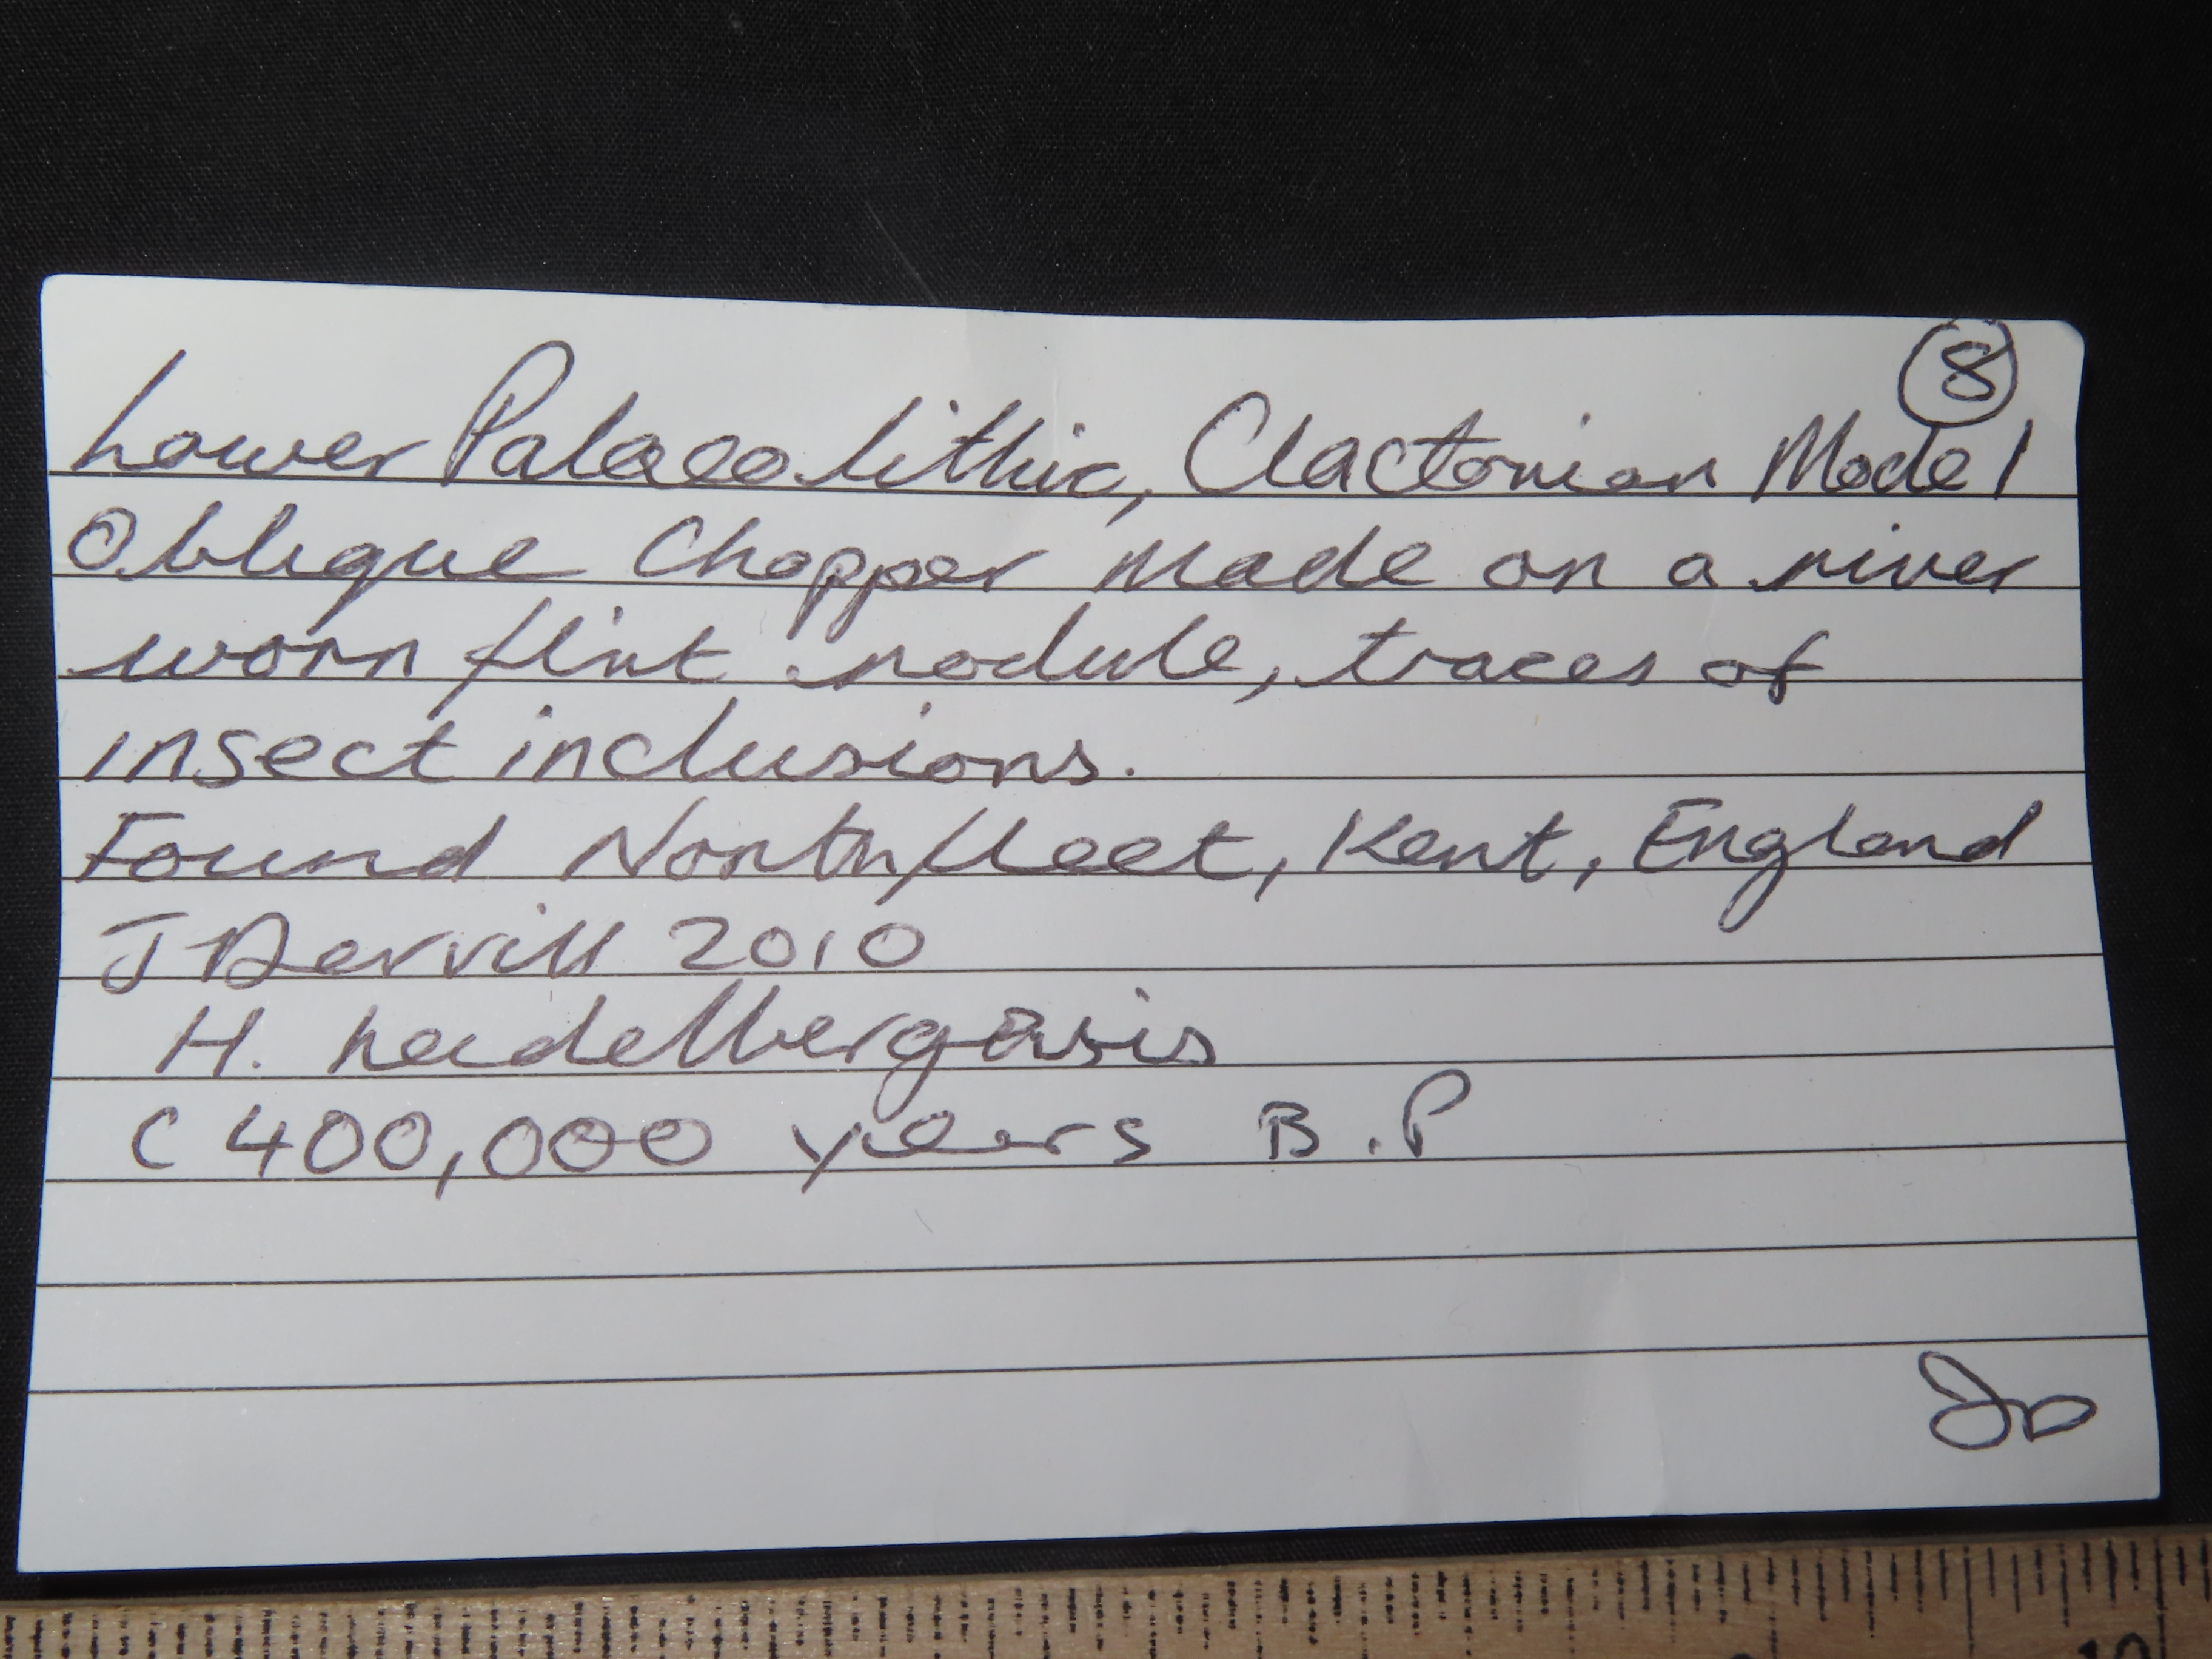 8
Lower Palaeolithic, Clactonian Mode 1
Oblique Chopper made on a river
worn flint nodule, traces of
insect inclusions.
Found Northfleet, Kent, England
J Dervill 2010
H. heidelbergensis
C 400,000 years B.P
JD
15